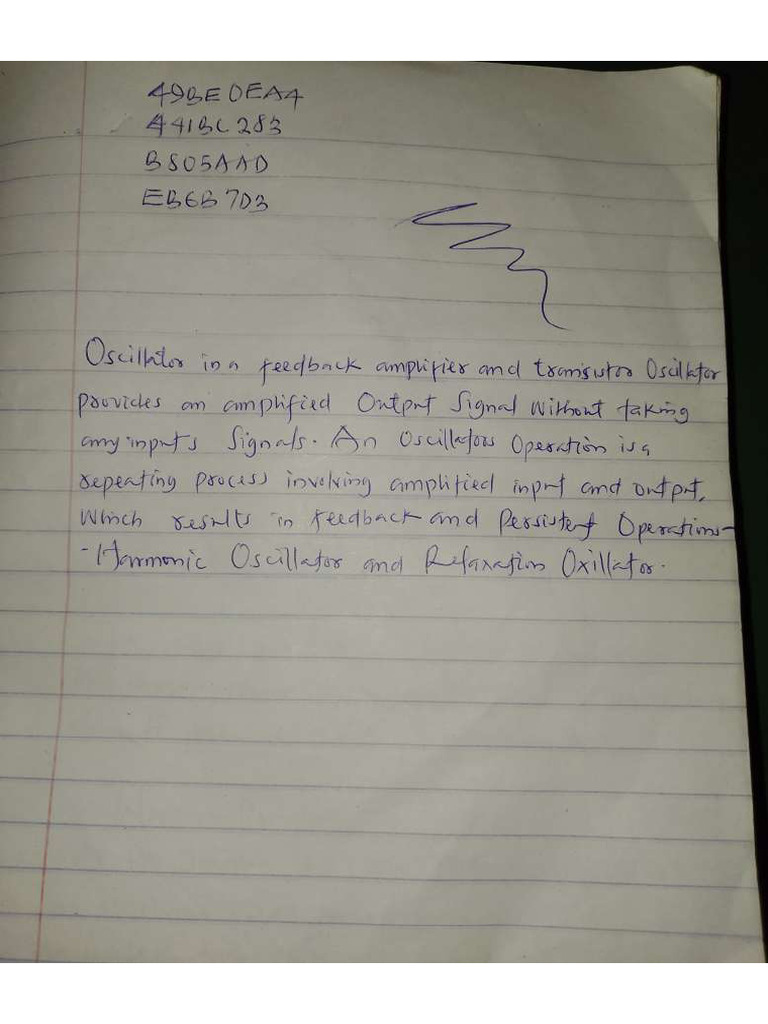 49BE0EA4
441BC283
B805AAD
EB6B7D3
Oscillator is a feedback amplifier and transistor Oscillator
provides an amplified Output Signal Without taking
any inputs Signals. An Oscillators Operation is a
repeating process involving amplified input and output,
Which results in feedback and Persistent Operations-
-Harmonic Oscillator and Relaxation Oxillator.